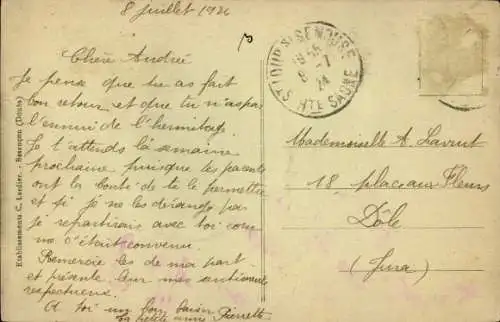 8 juillet 1924
Chère Andrée
Je pense que tu as fait
bon retour et que tu n'as pas
l'ennui de l'hermitage
Je t'attends la semaine
prochaine puisque tes parents
ont la bonté de te le permettre
et si je ne les dérange pas
je repartirais avec toi com
me c'était convenu.
Remercie les de ma part
et présente leur mes sentiments
respectueux.
A toi un bon baiser
ta petite amie Pierrette
Etablissements C. Lardier. - Besançon (Doubs)
ST LOUP S/ SEMOUSE
8 - 7
24
HTE SAONE
Mademoiselle A.
18, place aux Fleurs
Dôle
(Jura)